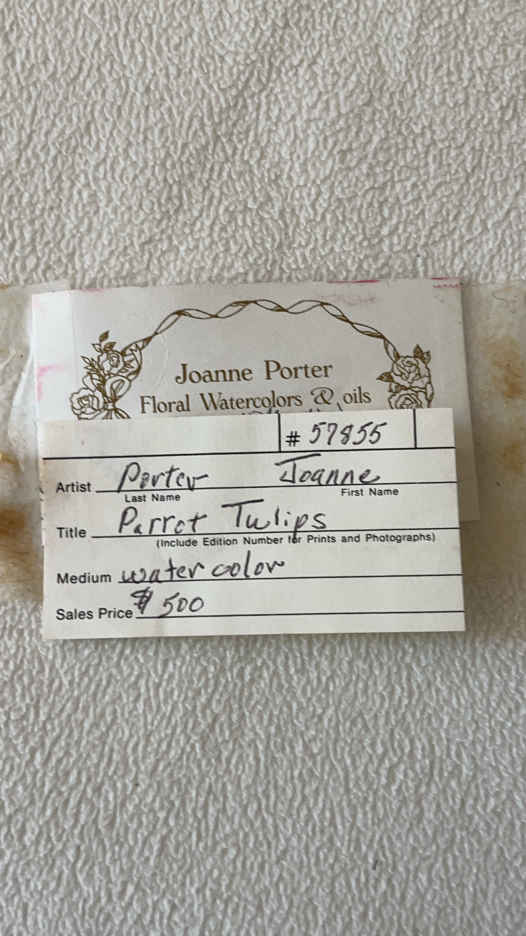 Joanne Porter
Floral Watercolors & oils
# 57855
Artist Porter Joanne
Last Name First Name
Title Parrot Tulips
(Include Edition Number for Prints and Photographs)
Medium water color
Sales Price $ 500